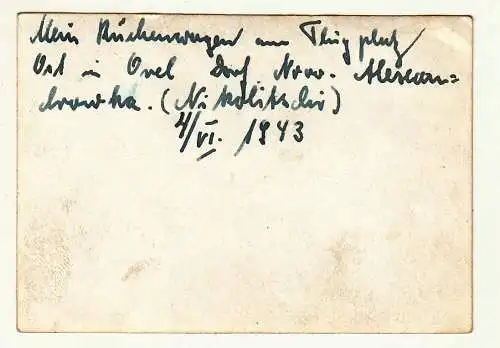 Mein Küchenwagen am Flugplatz
Ost in Orel Dorf Now. Alexan=
drowka. (Nikolitschi)
4/VI. 1943